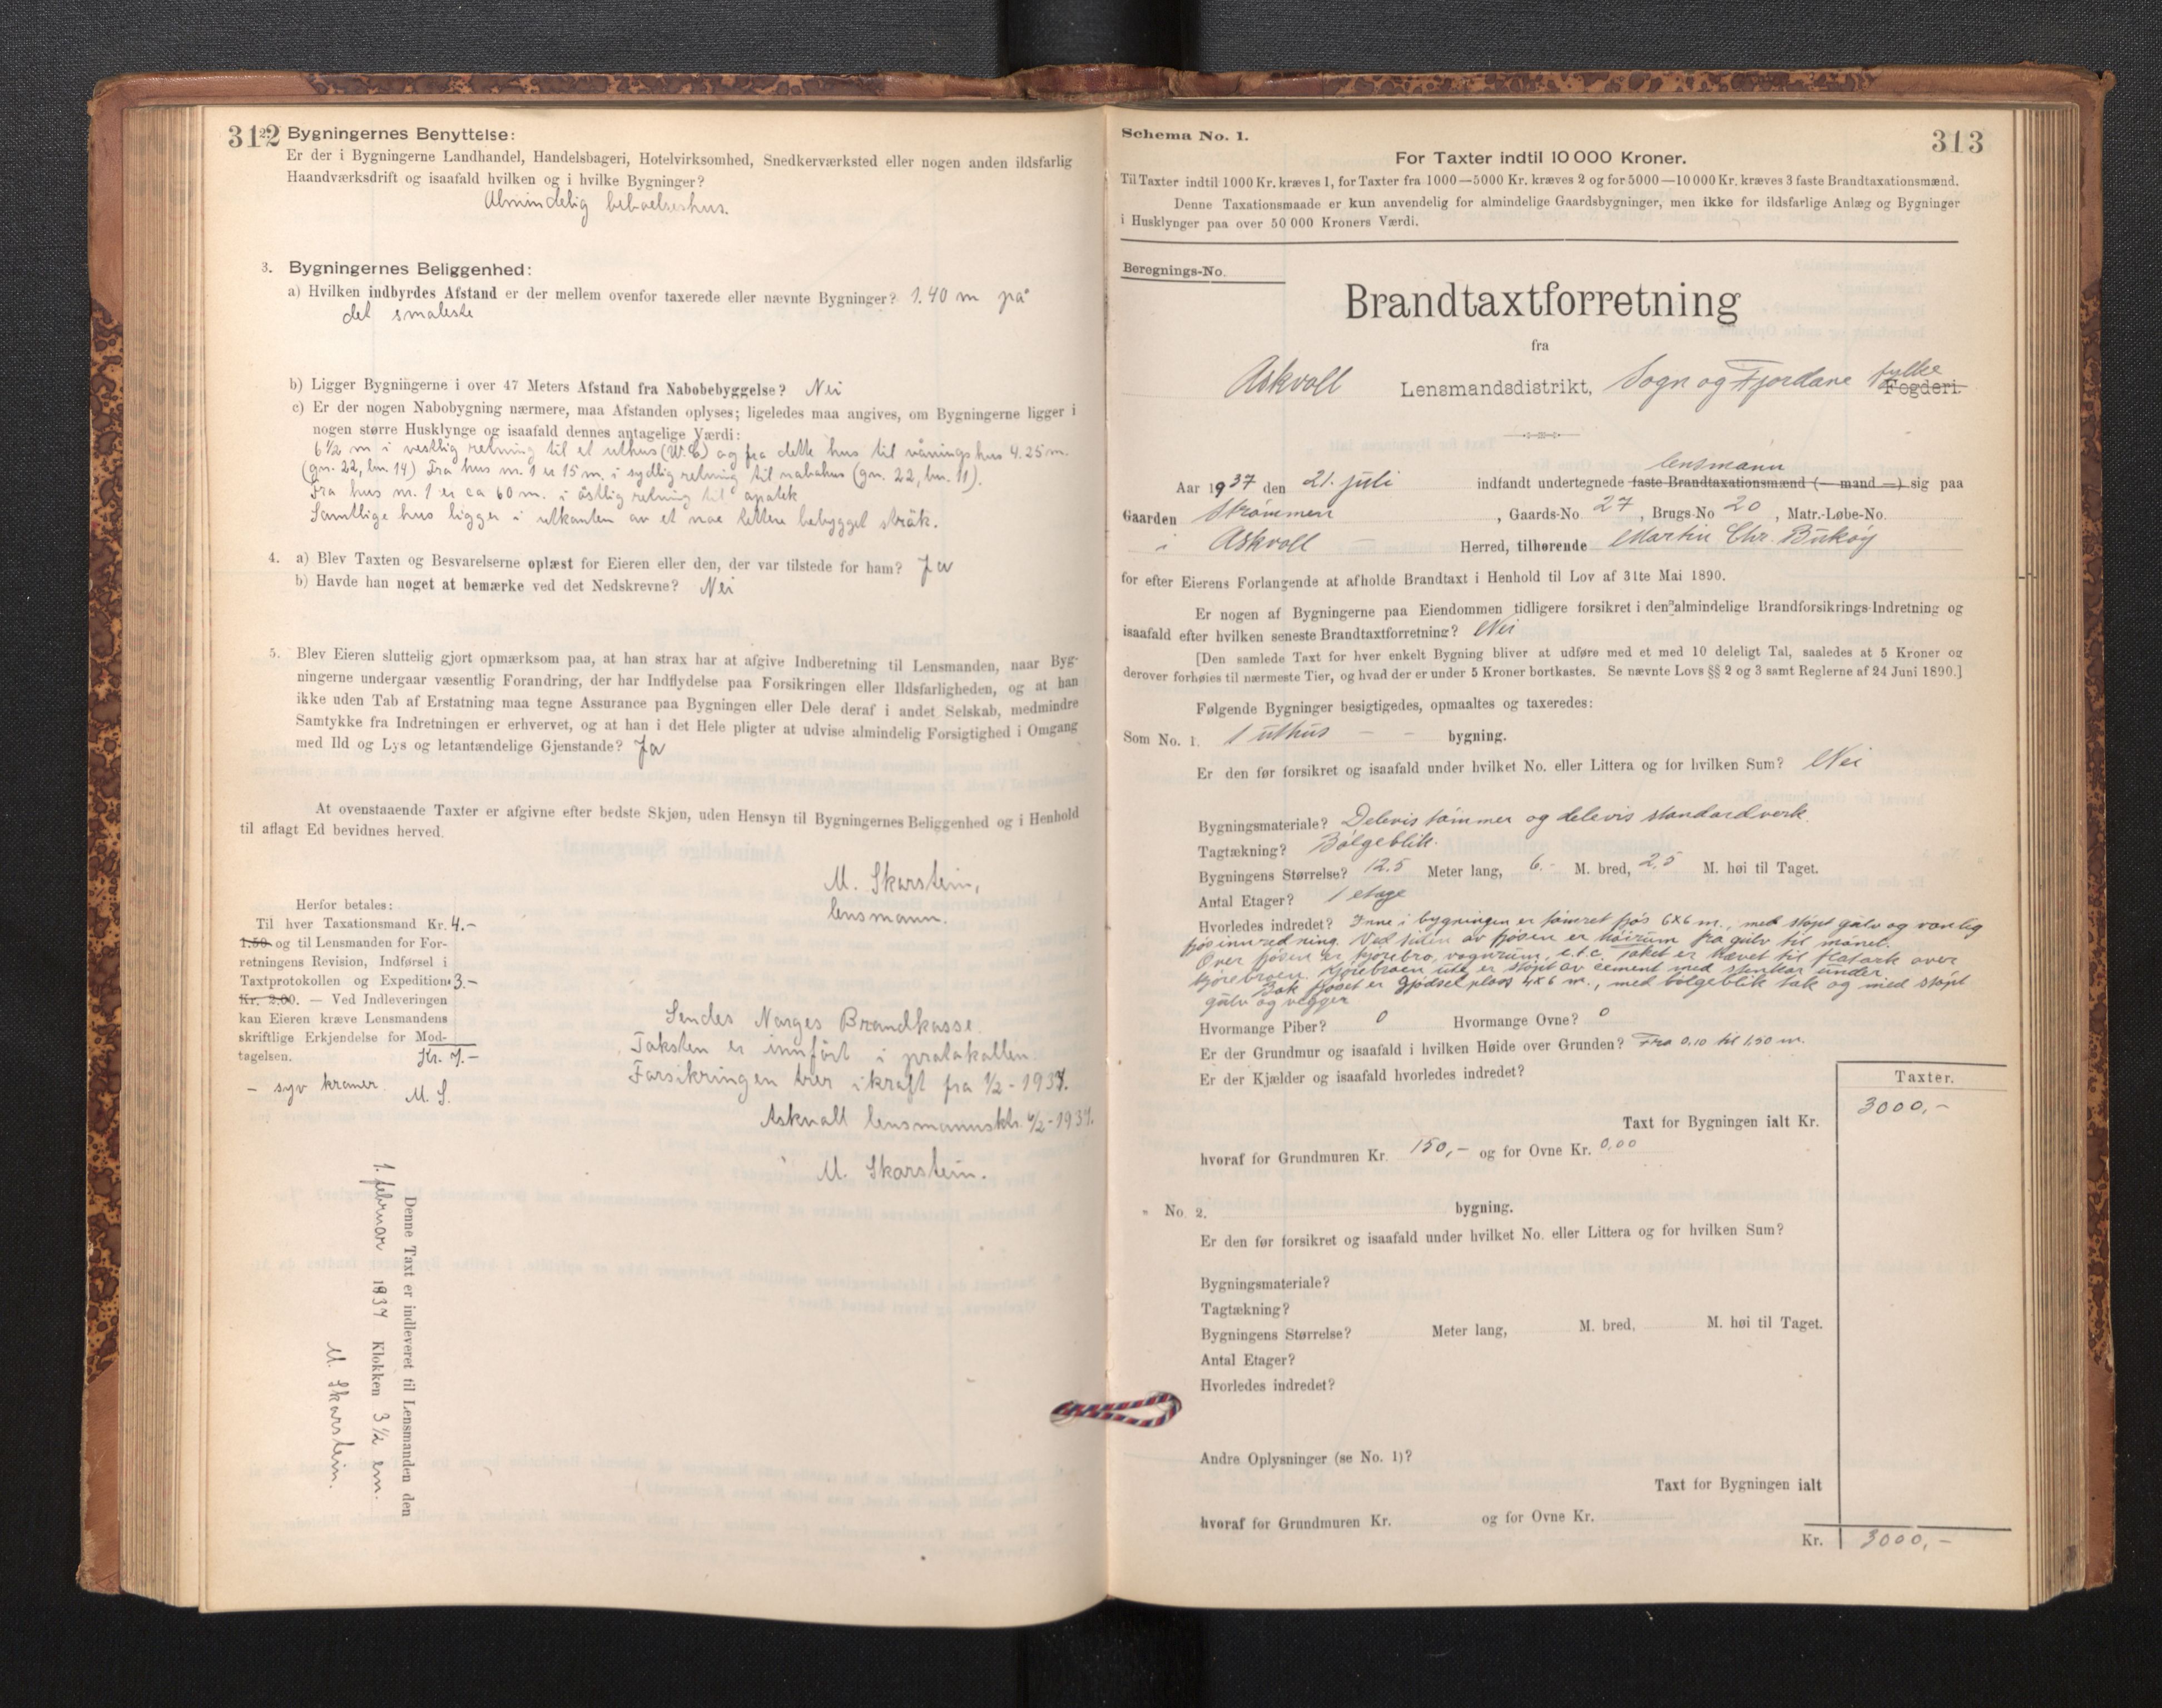 312
2. Bygningernes Benyttelse:
Er der i Bygningerne Landhandel, Handelsbageri, Hotelvirksomhed, Snedkerværksted eller nogen anden ildsfarlig
Haandværksdrift og isaafald hvilken og i hvilke Bygninger?
Almindelig beboelseshus.
3. Bygningernes Beliggenhed:
a) Hvilken indbyrdes Afstand er der mellem ovenfor taxerede eller nævnte Bygninger? 1.40 m på
det smaleste
b) Ligger Bygningerne i over 47 Meters Afstand fra Nabobebyggelse? Nei
c) Er der nogen Nabobygning nærmere, maa Afstanden oplyses; ligeledes maa angives, om Bygningerne ligger i
nogen større Husklynge og isaafald dennes antagelige Værdi:
6½ m i vestlig retning til et uthus (W.C) og fra dette hus til våningshus 4.25 m.
(gn. 22, bn. 14) Fra hus nr. 1 er 15 m. i sydlig retning til nabohus (gn. 22, bn. 11).
Fra hus nr. 1 er ca 60 m. i östlig retning til apotek
Samtlige hus ligger i utkanten av et noe tettere bebygget strök.
4. a) Blev Taxten og Besvarelserne oplæst for Eieren eller den, der var tilstede for ham? Ja
b) Havde han noget at bemærke ved det Nedskrevne? Nei
5. Blev Eieren sluttelig gjort opmærksom paa, at han strax har at afgive Indberetning til Lensmanden, naar Byg-
ningerne undergaar væsentlig Forandring, der har Indflydelse paa Forsikringen eller Ildsfarligheden, og at han
ikke uden Tab af Erstatning maa tegne Assurance paa Bygningen eller Dele deraf i andet Selskab, medmindre
Samtykke fra Indretningen er erhvervet, og at han i det Hele pligter at udvise almindelig Forsigtighed i Omgang
med Ild og Lys og letantændelige Gjenstande? Ja
At ovenstaaende Taxter er afgivne efter bedste Skjøn, uden Hensyn til Bygningernes Beliggenhed og i Henhold
til aflagt Ed bevidnes herved.
M. Skarstein,
lensmann.
Herfor betales:
Til hver Taxationsmand Kr. 4.-
1.50 og til Lensmanden for For-
retningens Revision, Indførsel i
Taxtprotokollen og Expedition 3.-
Kr. 2.00. — Ved Indleveringen
kan Eieren kræve Lensmandens
skriftlige Erkjendelse for Mod-
tagelsen. Kr. 7.-
- syv kroner. M. S.
Sendes Norges Brandkasse.
Taksten er innført i protokollen.
Forsikringen trer i kraft fra 1/2 - 1937.
Askvoll lensmannsktr. 4/2 - 1937.
M. Skarstein.
Denne Taxt er indleveret til Lensmanden den
1. februar 1937 Klokken 3½ em.
M. Skarstein.
Schema No. 1.
313
For Taxter indtil 10 000 Kroner.
Til Taxter indtil 1000 Kr. kræves 1, for Taxter fra 1000—5000 Kr. kræves 2 og for 5000—10 000 Kr. kræves 3 faste Brandtaxationsmænd.
Denne Taxationsmaade er kun anvendelig for almindelige Gaardsbygninger, men ikke for ildsfarlige Anlæg og Bygninger
i Husklynger paa over 50 000 Kroners Værdi.
Beregnings-No.
Brandtaxtforretning
fra
Askvoll Lensmandsdistrikt, Sogn og Fjordane fylke Fogderi.
lensmann
Aar 1937 den 21. juli indfandt undertegnede faste Brandtaxationsmænd (— mand —) sig paa
Gaarden Strømmen, Gaards-No 27, Brugs-No 20, Matr.-Løbe-No.
i Askvoll Herred, tilhørende Martin Chr. Bukøy
for efter Eierens Forlangende at afholde Brandtaxt i Henhold til Lov af 31te Mai 1890.
Er nogen af Bygningerne paa Eiendommen tidligere forsikret i den almindelige Brandforsikrings-Indretning og
isaafald efter hvilken seneste Brandtaxtforretning? Nei
[Den samlede Taxt for hver enkelt Bygning bliver at udføre med et med 10 deleligt Tal, saaledes at 5 Kroner og
derover forhøies til nærmeste Tier, og hvad der er under 5 Kroner bortkastes. Se nævnte Lovs §§ 2 og 3 samt Reglerne af 24 Juni 1890.]
Følgende Bygninger besigtigedes, opmaaltes og taxeredes:
Som No. 1. 1 uthus - - bygning.
Er den før forsikret og isaafald under hvilket No. eller Littera og for hvilken Sum? Nei
Bygningsmateriale? Delevis tømmer og delevis standardverk.
Tagtækning? Bølgeblik.
Bygningens Størrelse? 12.5 Meter lang, 6.- M. bred, 2.5 M. høi til Taget.
Antal Etager? 1 etage
Hvorledes indredet? Inne i bygningen er tømret fjøs 6x6 m., med støpt gulv og vanlig
fjøsinnredning. Ved siden av fjøsen er høirum fra gulv til mønet.
Over fjøsen er kjørebro, vognrum, e.t.c. Taket er hævet til flatark over
kjørebroen. Kjørebroen ute er støpt av cement med stenkar under.
Bak fjøset er gjødselplass 4x6 m., med bølgeblik tak og med støpt
gulv og vegger
Hvormange Piber? 0 Hvormange Ovne? 0
Er der Grundmur og isaafald i hvilken Høide over Grunden? Fra 0.10 til 1.50 m.
Er der Kjælder og isaafald hvorledes indredet?
Taxter.
Taxt for Bygningen ialt Kr. 3000,-
hvoraf for Grundmuren Kr. 150,- og for Ovne Kr. 0,00
" No. 2. bygning.
Er den før forsikret og isaafald under hvilket No. eller Littera og for hvilken Sum?
Bygningsmateriale?
Tagtækning?
Bygningens Størrelse? Meter lang, M. bred, M. høi til Taget.
Antal Etager?
Hvorledes indredet?
Andre Oplysninger (se No. 1)?
Taxt for Bygningen ialt
hvoraf for Grundmuren Kr. og for Ovne Kr.
Kr. 3000,-